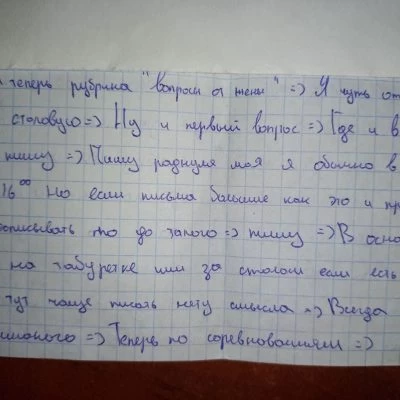 теперь рубрика "вопросы от жены" => Я чуть от
столовую => Ну и первый вопрос => Где и в
пишу => Пишу роднуля моя я обычно в
16⁰⁰ Но если письма большие как это и пр
дописывать то до такого => пишу => В осно
на табуретке или за столом если есть
тут чаще писать нету смысла => Всегда
=> Теперь по соревнованиям =>